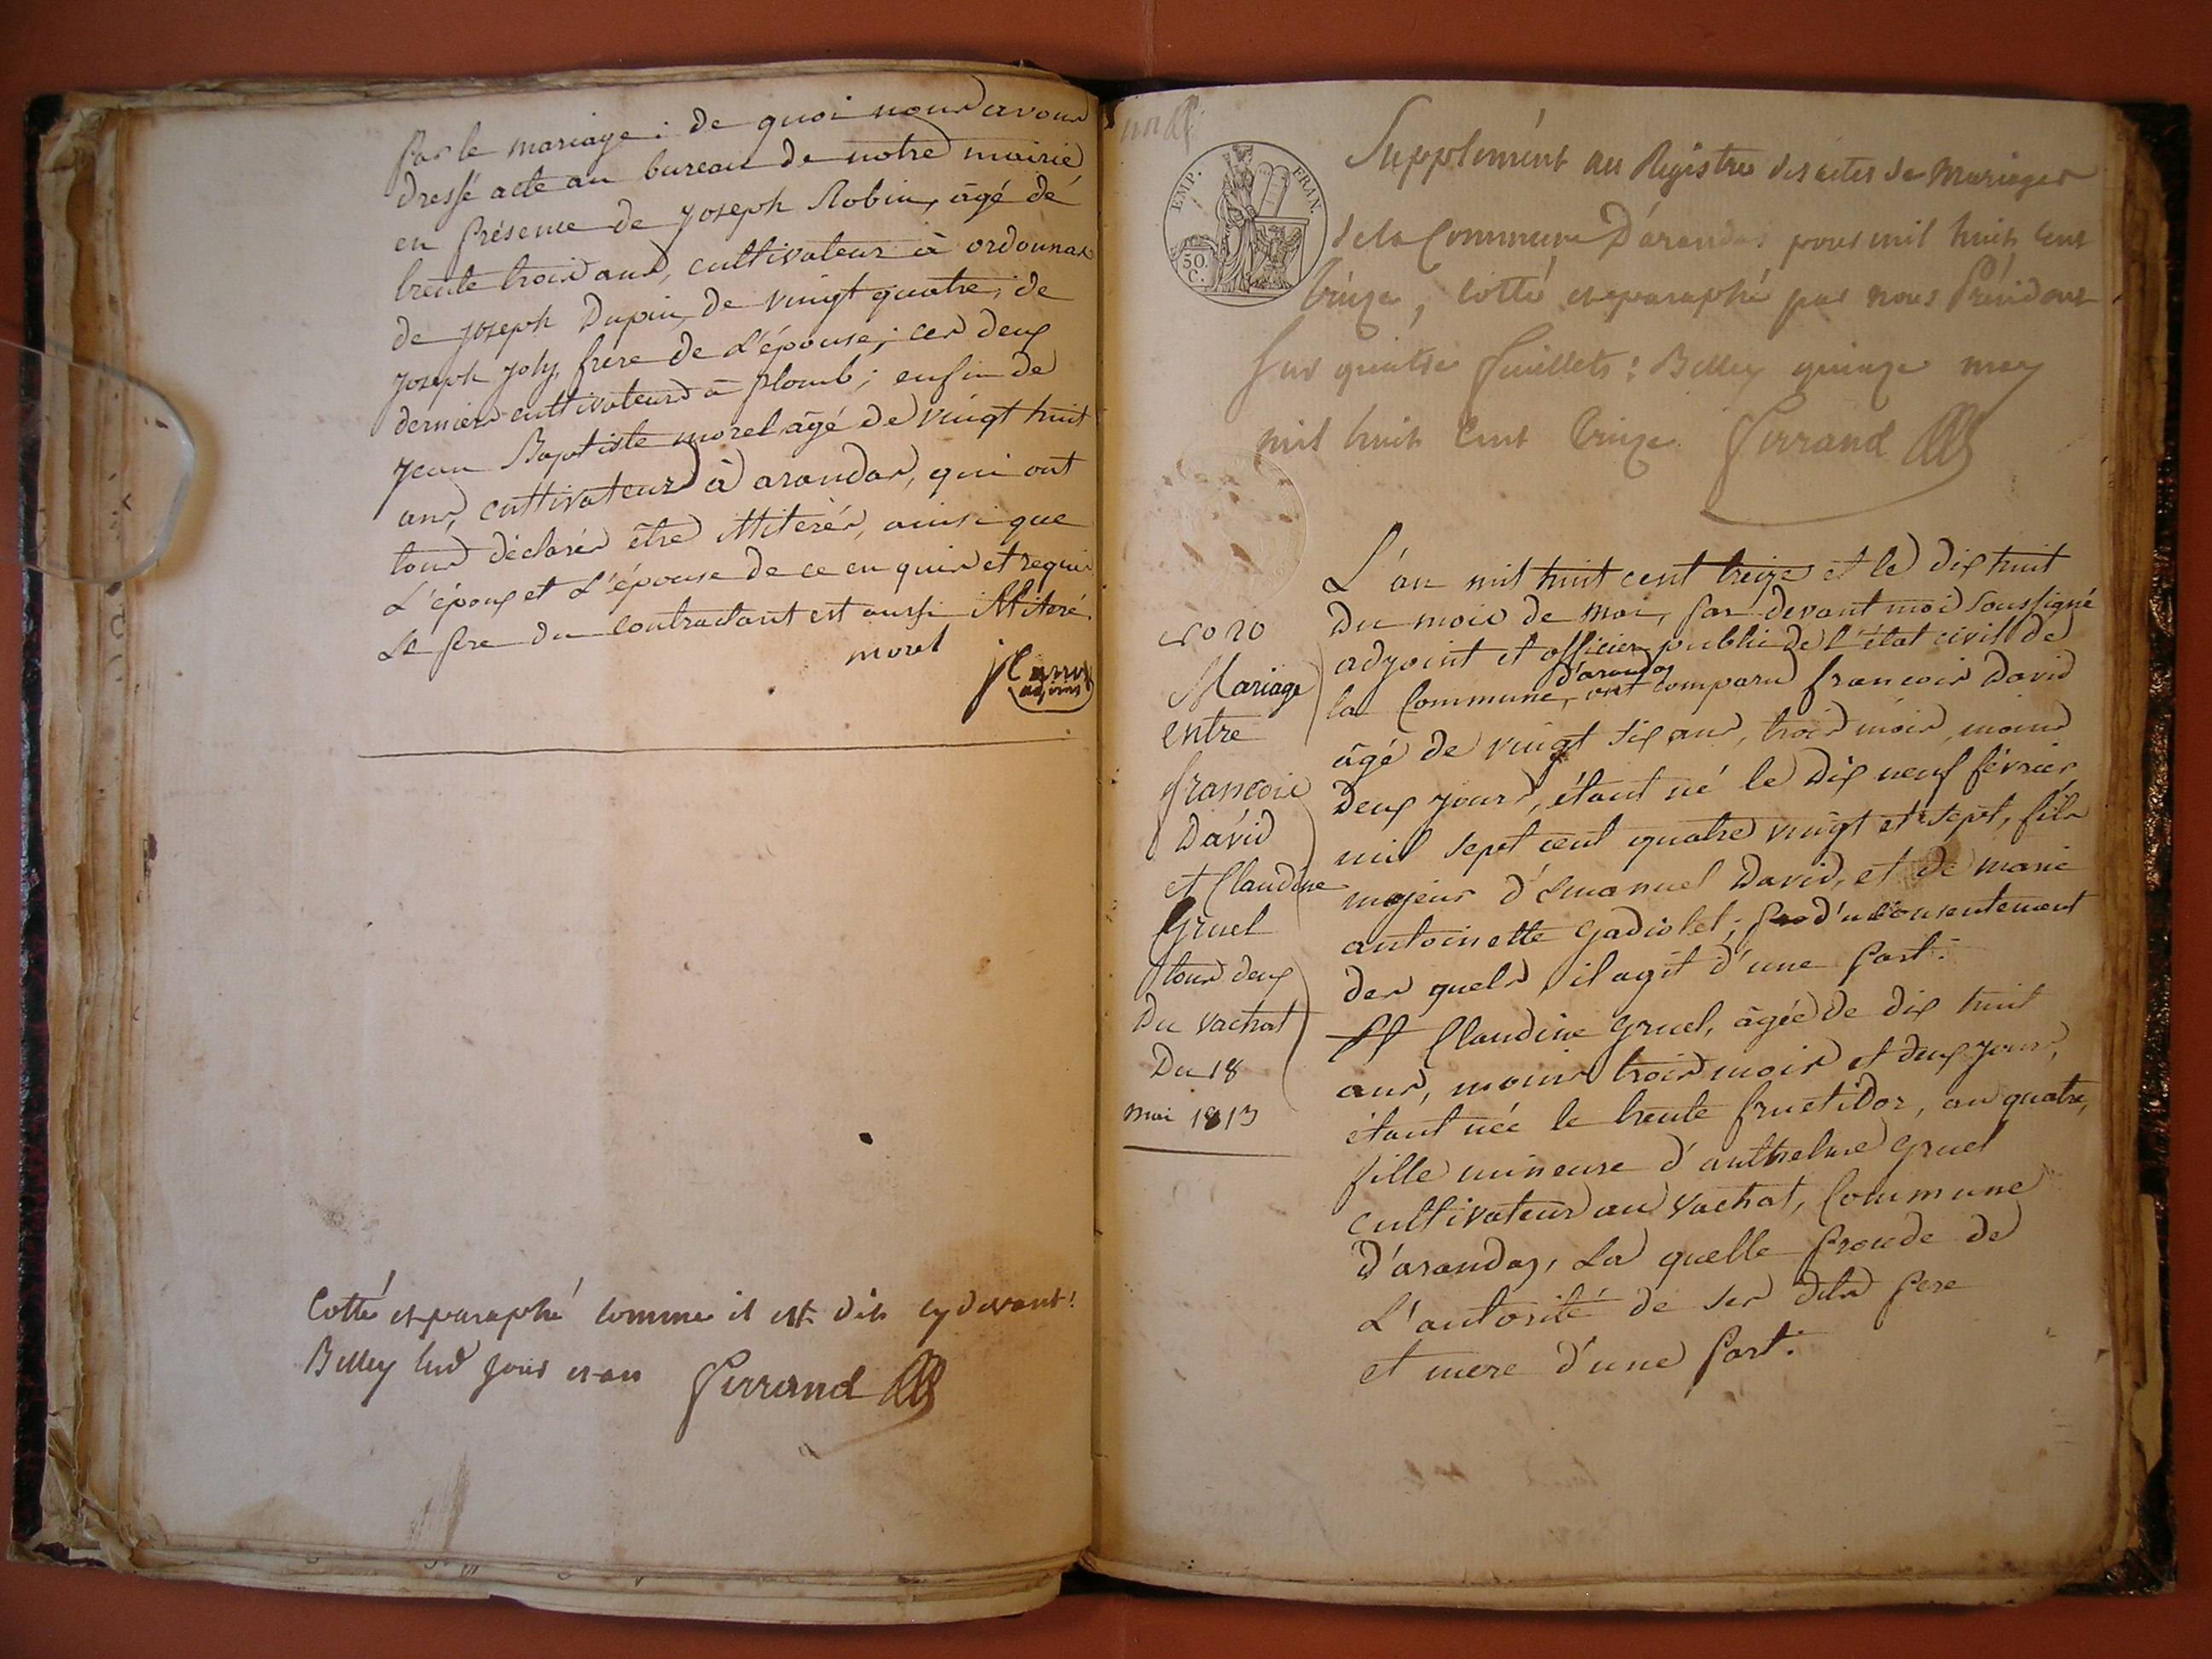 par le mariage : de quoi nous avons
dressé acte au bureau de notre mairie
en présence de joseph Robin, âgé de
trente trois ans, cultivateur à ordonnas
de joseph Dupin, de vingt quatre, de
joseph joly, frere de L'épouse ; ces deux
derniers cultivateurs à plomb ; enfin de
jean Baptiste morel âgé de vingt huit
ans, cultivateur à arandas, qui ont
tous déclarés être illiterés, ainsi que
L'époux et L'épouse de ce enquis et requis
Le pere du contractant est aussi illiteré.
morel
adjoint
Cotté et paraphé comme il est dit cy devant :
Belley lesd jour et an Perrand
EMP. FRAN.
50. C.
Supplément au Registre des actes de Mariages
de la Commune D'arandas pour mil huit cent
treize, cotté et paraphé par nous Président
sur quatre feuillets : Belley quinze may
mil huit cent treize Perrand
No 20
Mariage
entre
françois
David
et Claudine
Gruel
tous deux
Du vachat
Du 18
mai 1813
L'an mil huit cent treize et le dix huit
du mois de mai, par devant moi soussigné
adjoint et officier public de l'état civil de
la Commune d'arandas, ont comparu françois David
âgé de vingt six ans, trois mois, moins
deux jours, étant né le dix neuf février
mil sept cent quatre vingt et sept, fils
majeur d'Emanuel David, et de marie
antoinette Gadiolet ; du consentement
des quels il agit d'une part.
Et Claudine Gruel, âgée de dix huit
ans, moins trois mois et deux jours,
étant née le trente fructidor, an quatre,
fille mineure d'anthelme Gruel
cultivateur au vachat, Commune
D'arandas, La quelle procède de
L'autorité de ses dits pere
et mere d'une part.